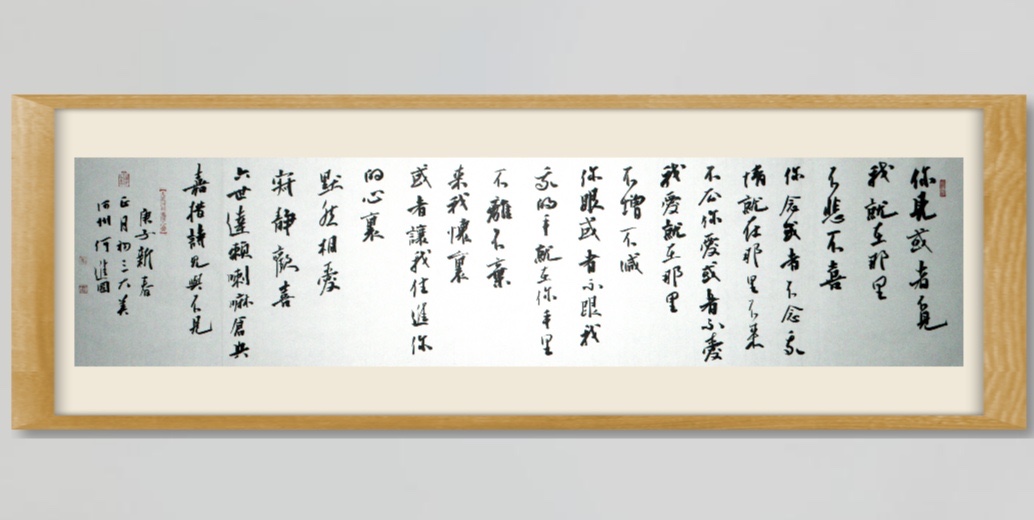 你見或者不見
我就在那里
不悲不喜
你念或者不念我
情就在那里不來
不去你愛或者不愛
我愛就在那里
不增不減
你跟或者不跟我
我的手就在你手里
不離不棄
來我懷裏
或者讓我住進你
的心裏
默然相愛
寂靜歡喜
六世達賴喇嘛倉央
嘉措詩見與不見
庚子新春
正月初三